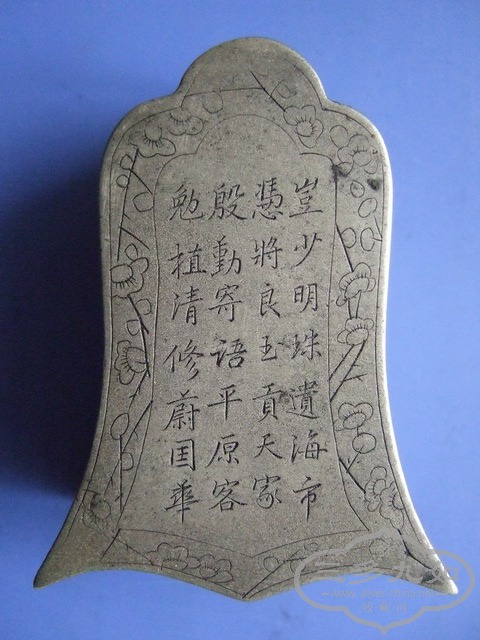 豈少明珠遺海市
憑將良玉貢天家
殷勤寄语平原客
勉植清修蔚国華